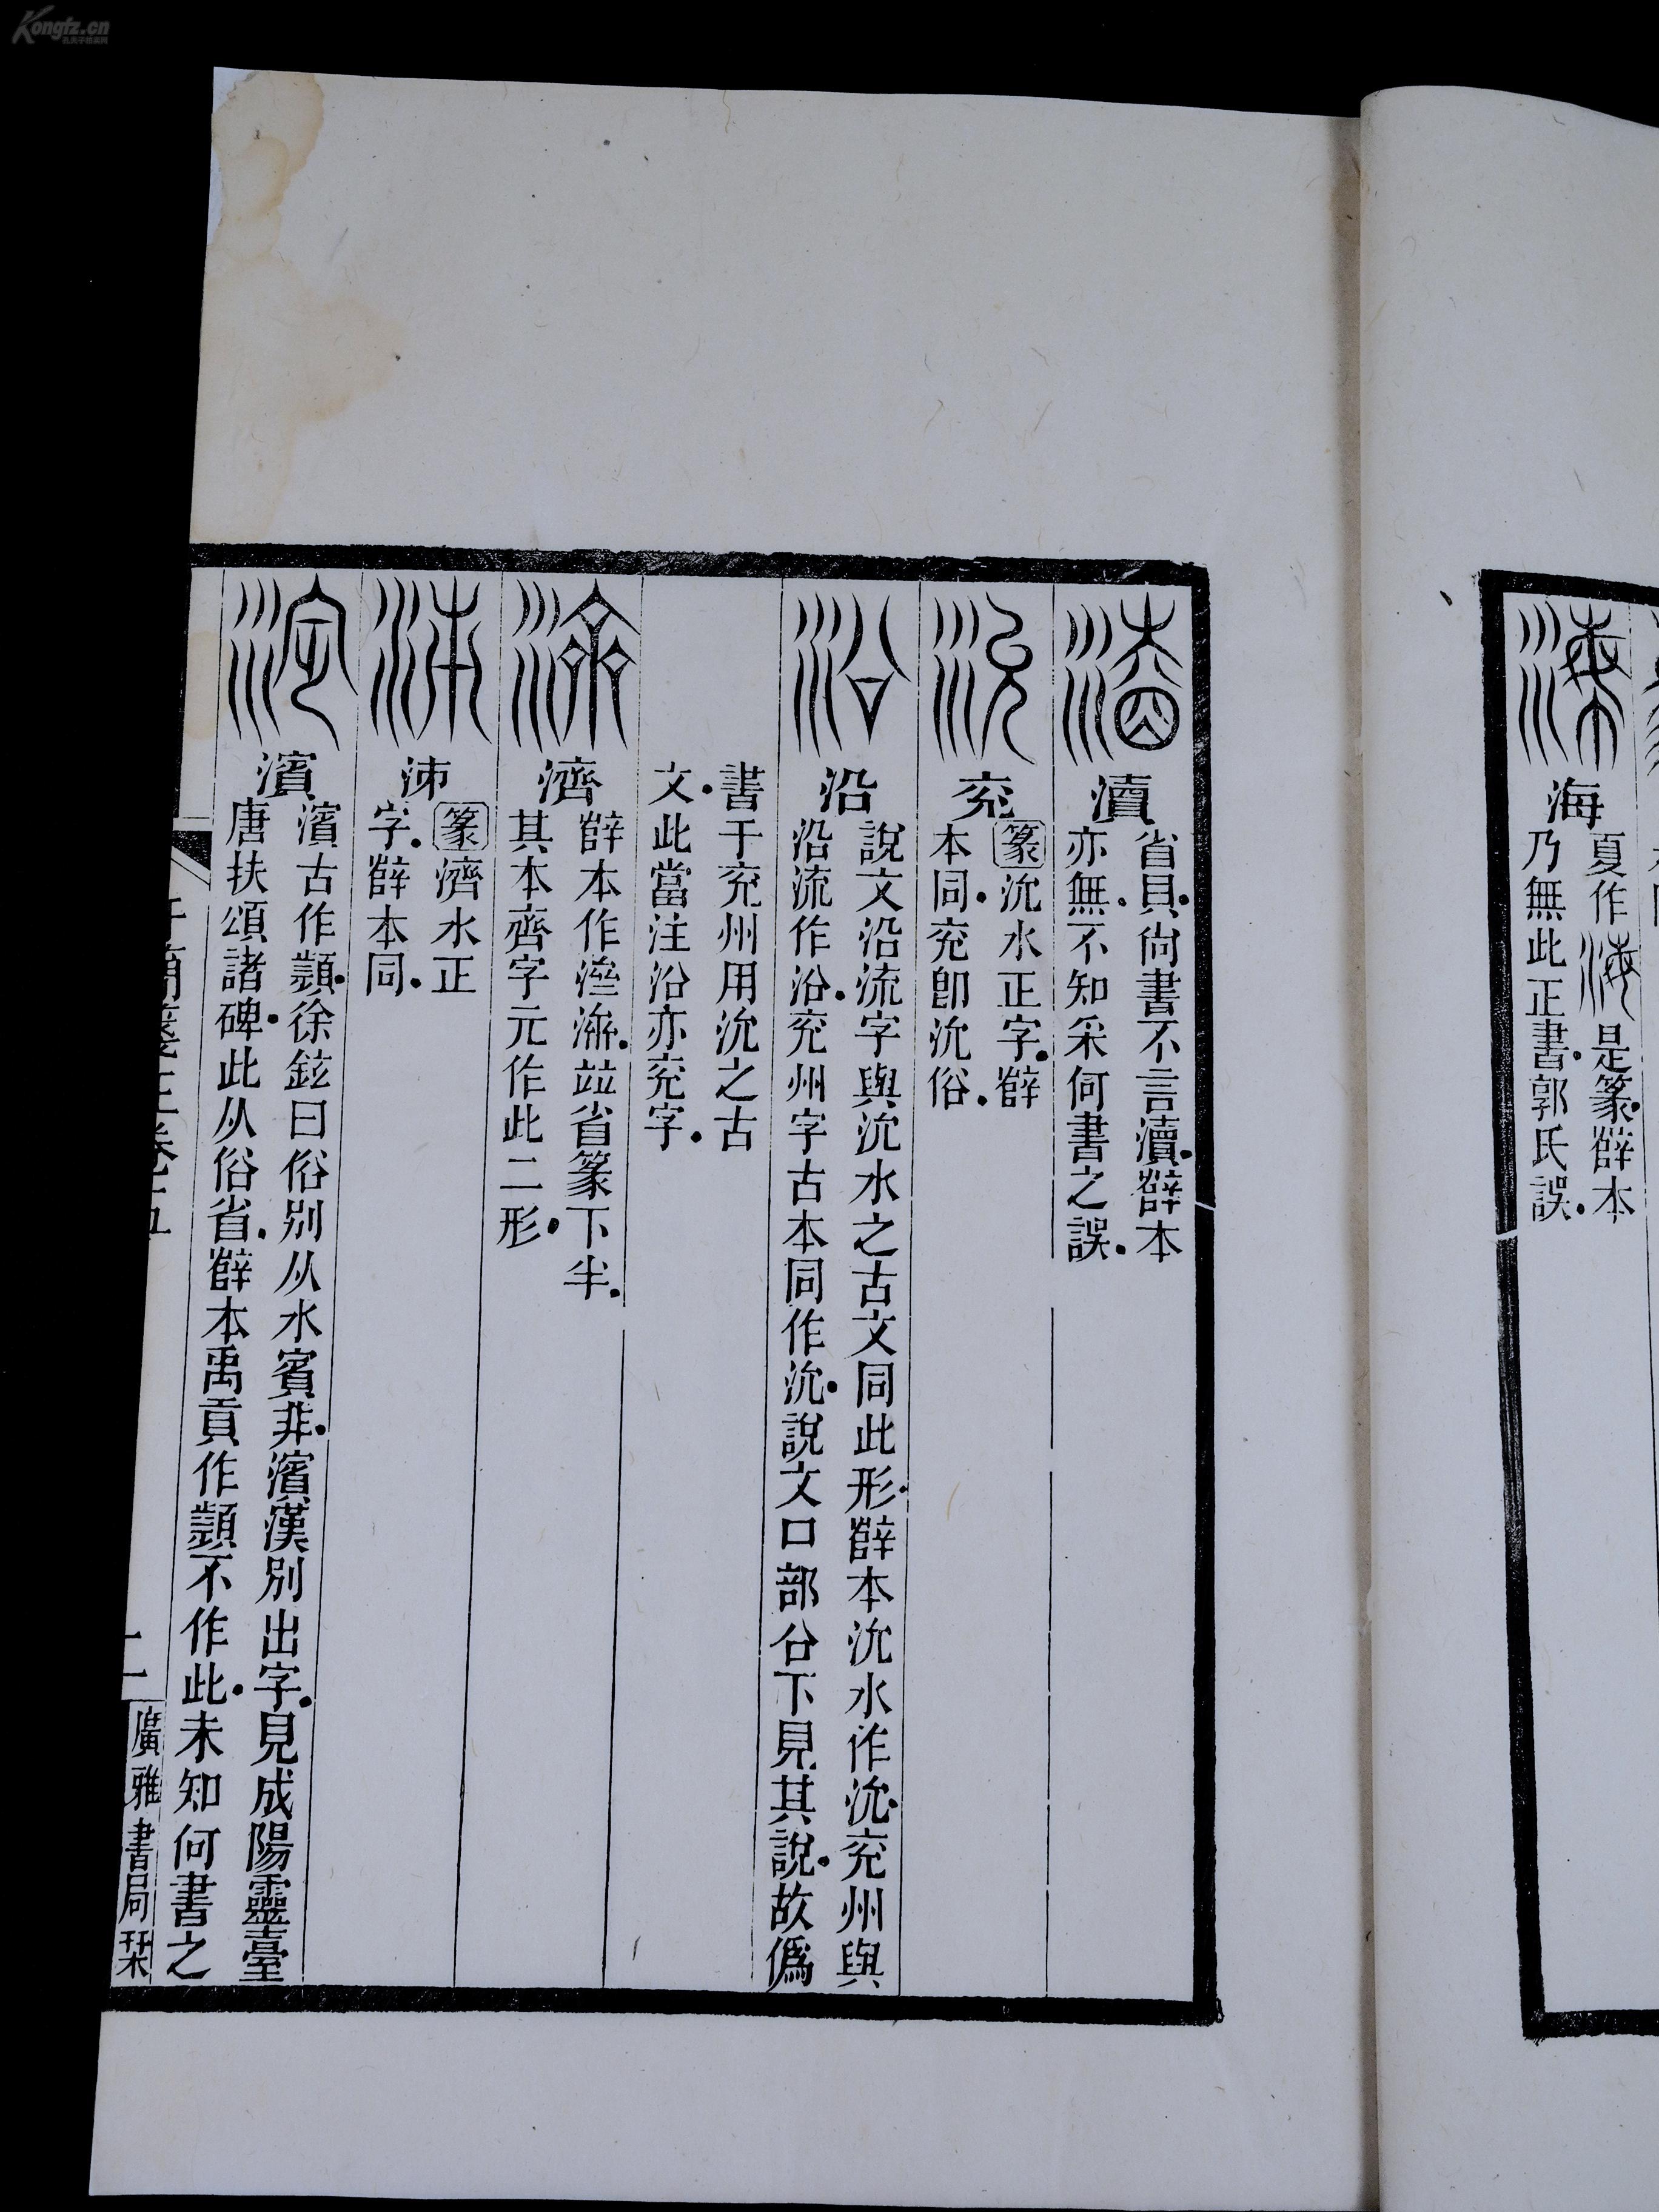 Kongfz.cn
海
夏作海是篆薛本
乃無此正書郭氏誤
瀆
省貝尙書不言瀆薛本
亦無不知采何書之誤
兖
篆沇水正字薛
本同兖卽沇俗
沿
說文沿流字與沇水之古文同此形薛本沇水作沇兖州與
沿流作沿兖州字古本同作沇說文口部㕣下見其說故僞
書于兖州用沇之古
文此當注沿亦兖字
濟
薛本作㴉泲竝省篆下半
其本齊字元作此二形
泲
篆濟水正
字薛本同
濱
濱古作顮徐鉉曰俗別从水賓非濱漢別出字見成陽靈臺
唐扶頌諸碑此从俗省薛本禹貢作顮不作此未知何書之
廣雅書局栞